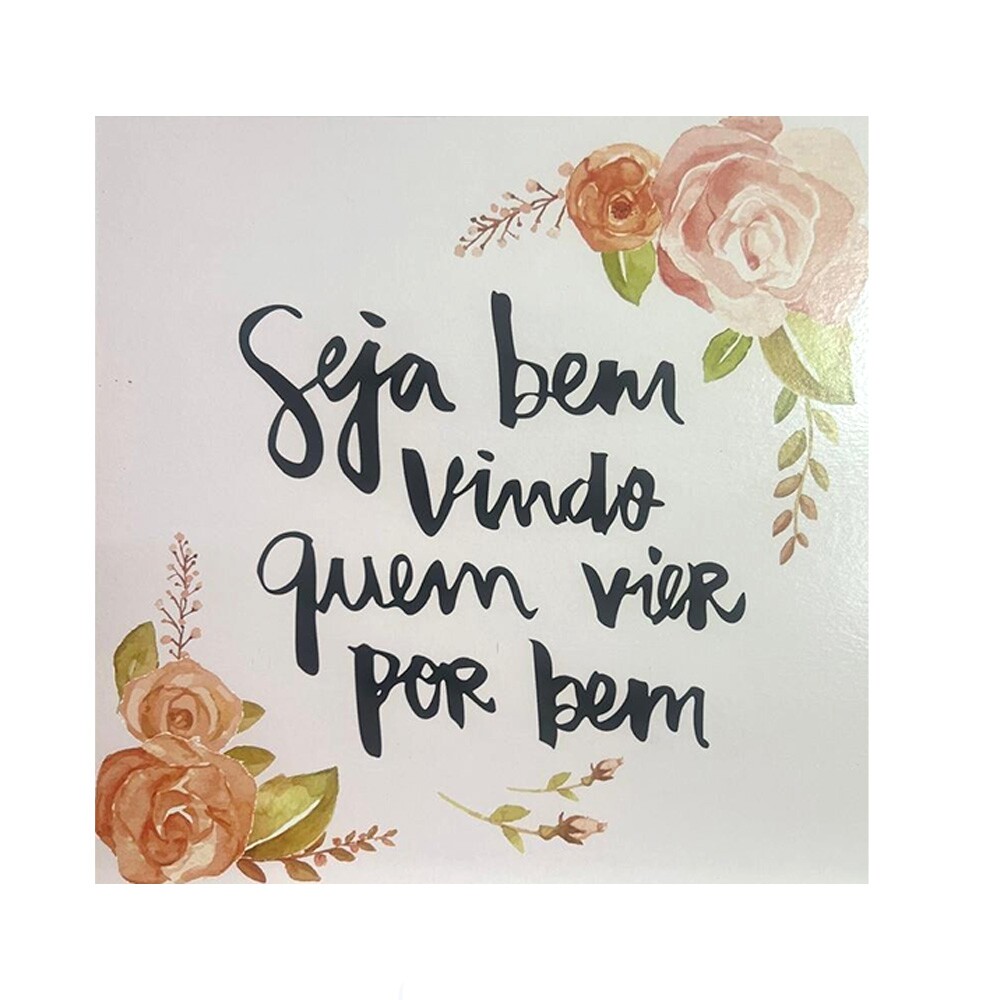 Seja bem
vindo
quem vier
por bem